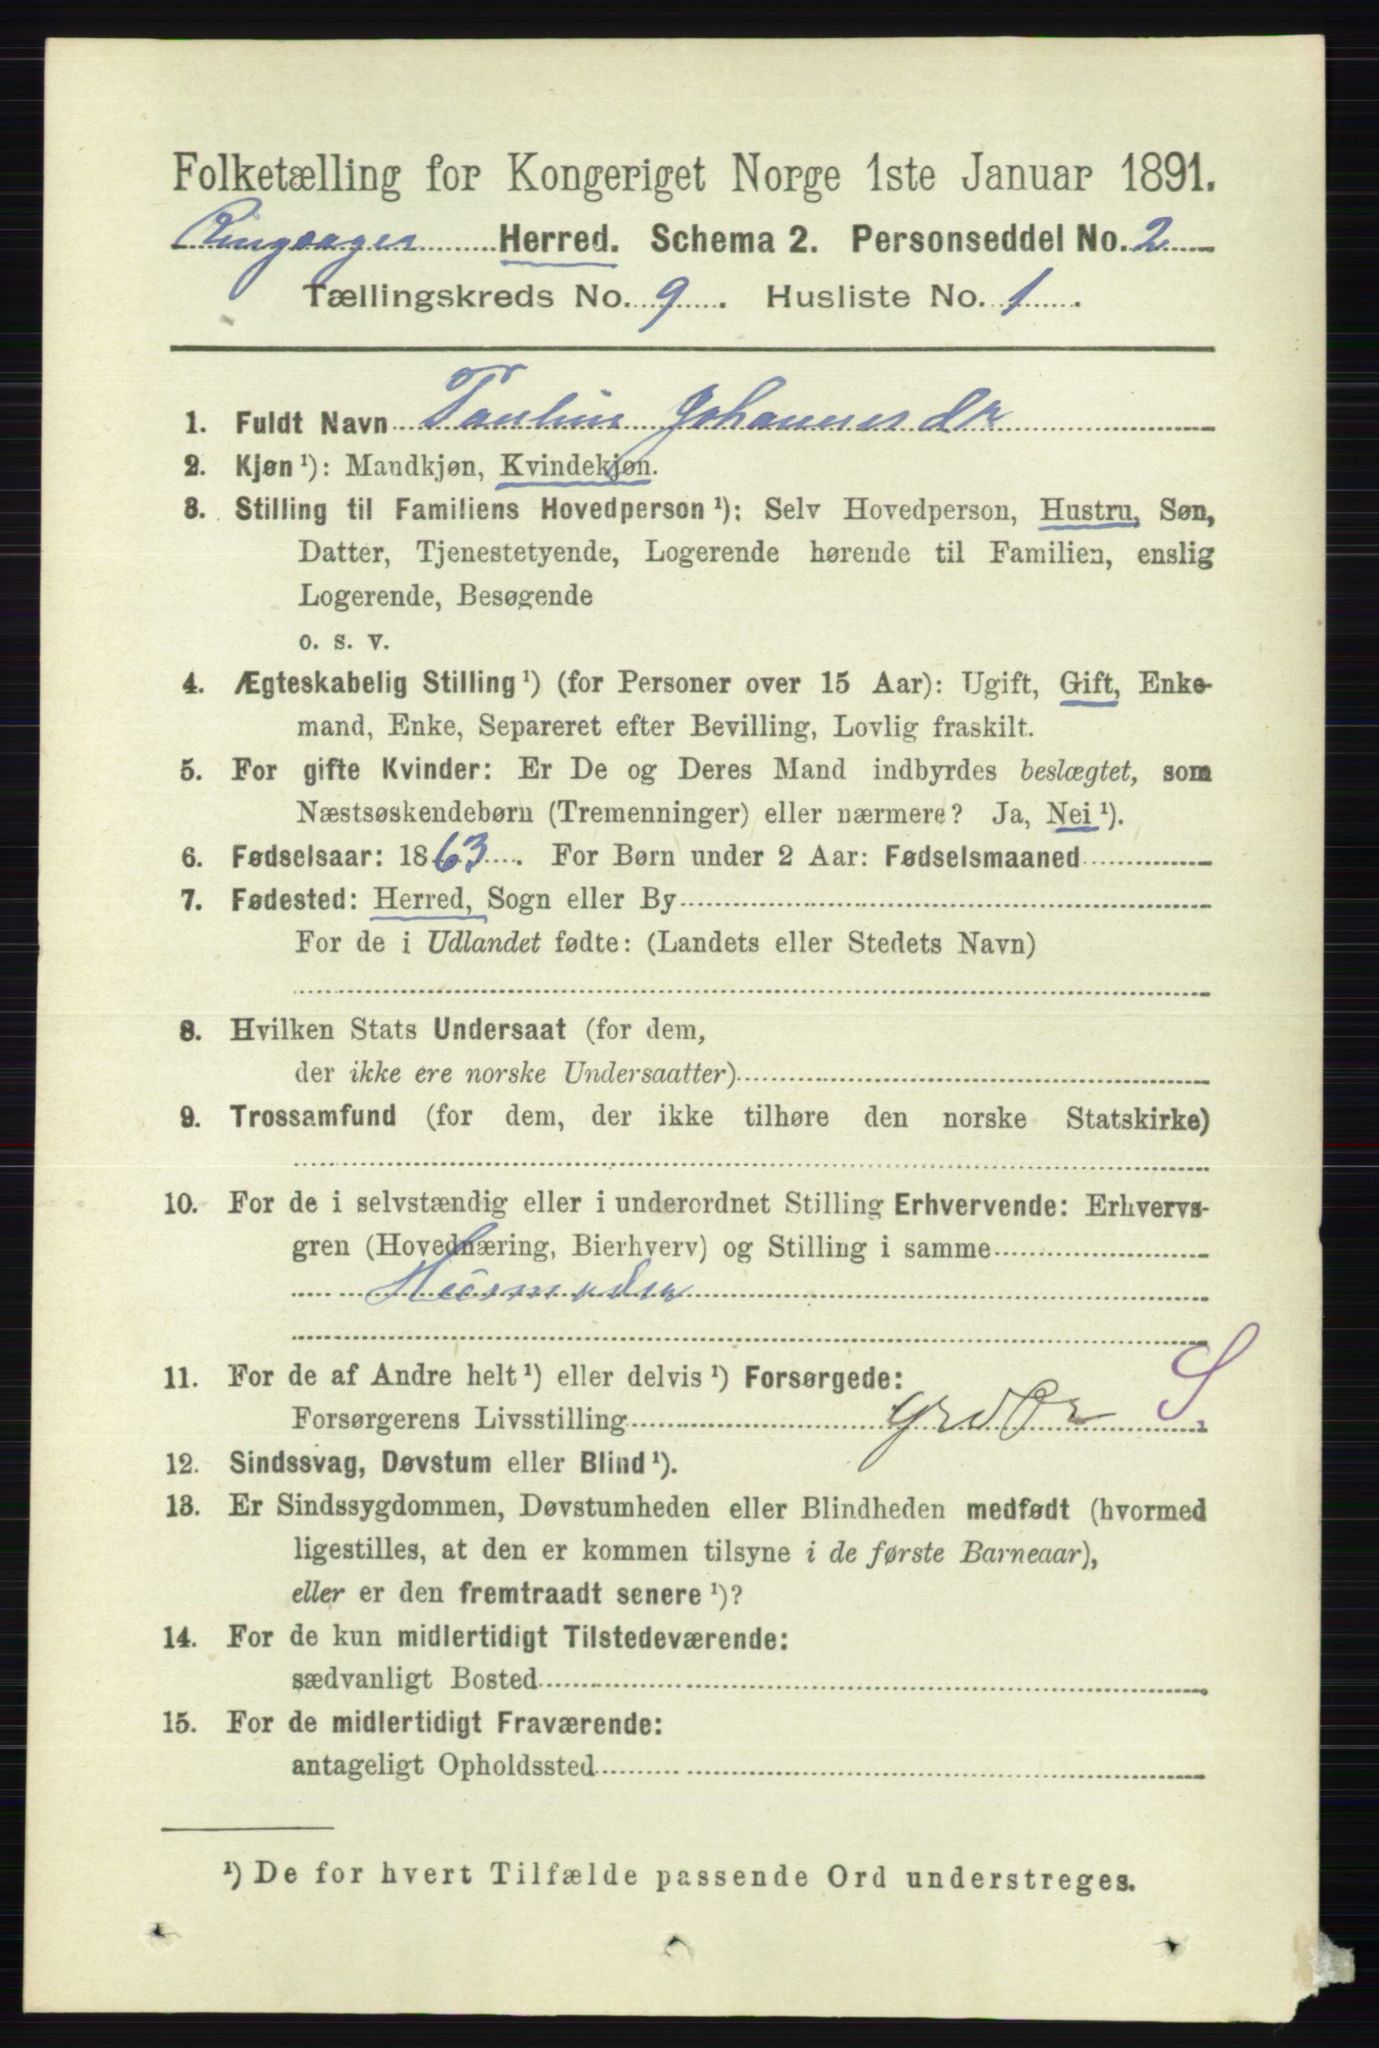 Folketælling for Kongeriget Norge 1ste Januar 1891.
Ringsager Herred. Schema 2. Personseddel No. 2
Tællingskreds No. 9. Husliste No. 1.
1. Fuldt Navn Pauline Johannesdr
2. Kjøn ¹): Mandkjøn, Kvindekjøn.
3. Stilling til Familiens Hovedperson ¹): Selv Hovedperson, Hustru, Søn,
Datter, Tjenestetyende, Logerende hørende til Familien, enslig
Logerende, Besøgende
o. s. v.
4. Ægteskabelig Stilling ¹) (for Personer over 15 Aar): Ugift, Gift, Enke-
mand, Enke, Separeret efter Bevilling, Lovlig fraskilt.
5. For gifte Kvinder: Er De og Deres Mand indbyrdes beslægtet, som
Næstsøskendebørn (Tremenninger) eller nærmere? Ja, Nei ¹).
6. Fødselsaar: 1863. For Børn under 2 Aar: Fødselsmaaned
7. Fødested: Herred, Sogn eller By
For de i Udlandet fødte: (Landets eller Stedets Navn)
8. Hvilken Stats Undersaat (for dem,
der ikke ere norske Undersaatter)
9. Trossamfund (for dem, der ikke tilhøre den norske Statskirke)
10. For de i selvstændig eller i underordnet Stilling Erhvervende: Erhvervs-
gren (Hovednæring, Bierhverv) og Stilling i samme
11. For de af Andre helt ¹) eller delvis ¹) Forsørgede:
Forsørgerens Livsstilling S
12. Sindssvag, Døvstum eller Blind ¹).
13. Er Sindssygdommen, Døvstumheden eller Blindheden medfødt (hvormed
ligestilles, at den er kommen tilsyne i de første Barneaar),
eller er den fremtraadt senere ¹)?
14. For de kun midlertidigt Tilstedeværende:
sædvanligt Bosted
15. For de midlertidigt Fraværende:
antageligt Opholdssted
¹) De for hvert Tilfælde passende Ord understreges.